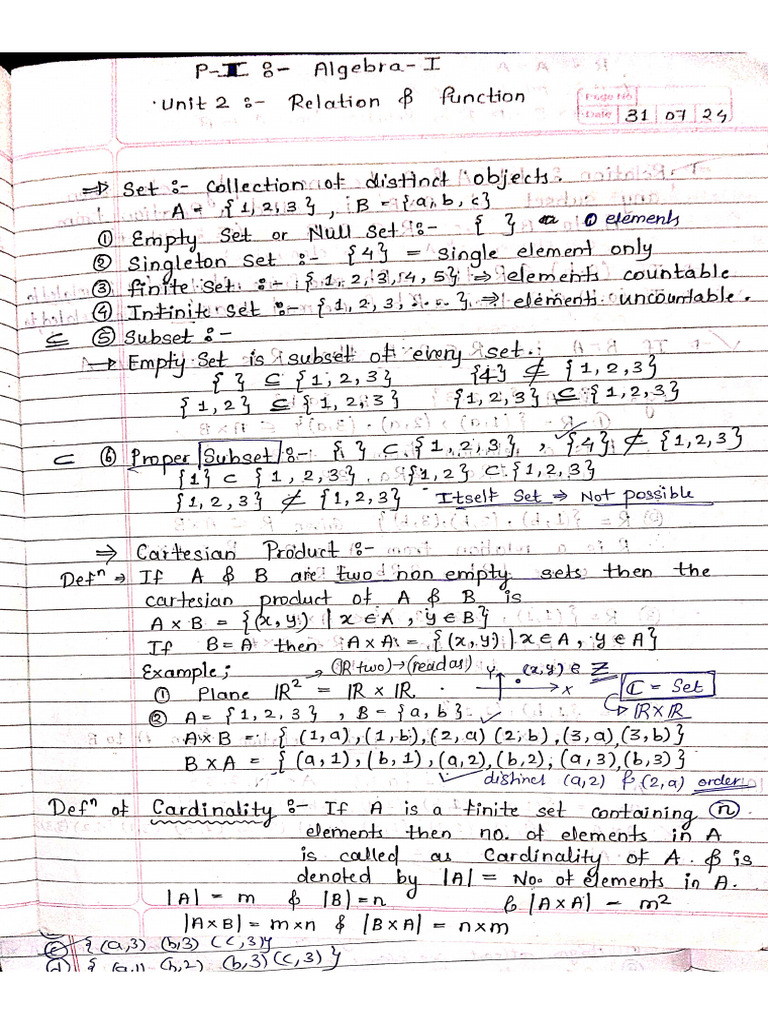 P-I :- Algebra-I
Unit 2 :- Relation & function
Page No
Date 31 07 24
⇒ Set :- collection of distinct objects.
A = {1, 2, 3}, B = {a, b, c}
① Empty Set or Null Set :- { } 0 elements
② Singleton Set :- {4} = single element only
③ finite Set :- {1, 2, 3, 4, 5} ⇒ elements countable
④ Infinite Set :- {1, 2, 3, ...} ⇒ elements uncountable.
⊆ ⑤ Subset :-
→ Empty Set is subset of every set.
{ } ⊆ {1, 2, 3} {4} ⊄ {1, 2, 3}
{1, 2} ⊆ {1, 2, 3} {1, 2, 3} ⊆ {1, 2, 3}
⊂ ⑥ Proper Subset :- { } ⊂ {1, 2, 3}, {4} ⊄ {1, 2, 3}
{1} ⊂ {1, 2, 3}, {1, 2} ⊂ {1, 2, 3}
{1, 2, 3} ⊄ {1, 2, 3} Itself Set ⇒ Not possible
⇒ Cartesian Product :-
Defⁿ → If A & B are two non empty sets then the
cartesian product of A & B is
A × B = {(x, y) | x ∈ A, y ∈ B}
If B = A then A × A = {(x, y) | x ∈ A, y ∈ A}
Example; → (IR two) → (read as) Y (x, y) ∈ Z
① Plane IR² = IR × IR. X ℂ = Set
→ IR × IR
② A = {1, 2, 3}, B = {a, b}
A × B = {(1, a), (1, b), (2, a) (2, b), (3, a), (3, b)}
B × A = {(a, 1), (b, 1), (a, 2), (b, 2), (a, 3), (b, 3)}
distinct (a, 2) & (2, a) order
Defⁿ of Cardinality :- If A is a finite set containing n
elements then no. of elements in A
is called as Cardinality of A. & is
denoted by |A| = No. of elements in A.
|A| = m & |B| = n & |A × A| = m²
|A × B| = m × n & |B × A| = n × m
c) {(a, 3) (b, 3) (c, 3)}
d) { (a, 1) (b, 2) (b, 3) (c, 3) }